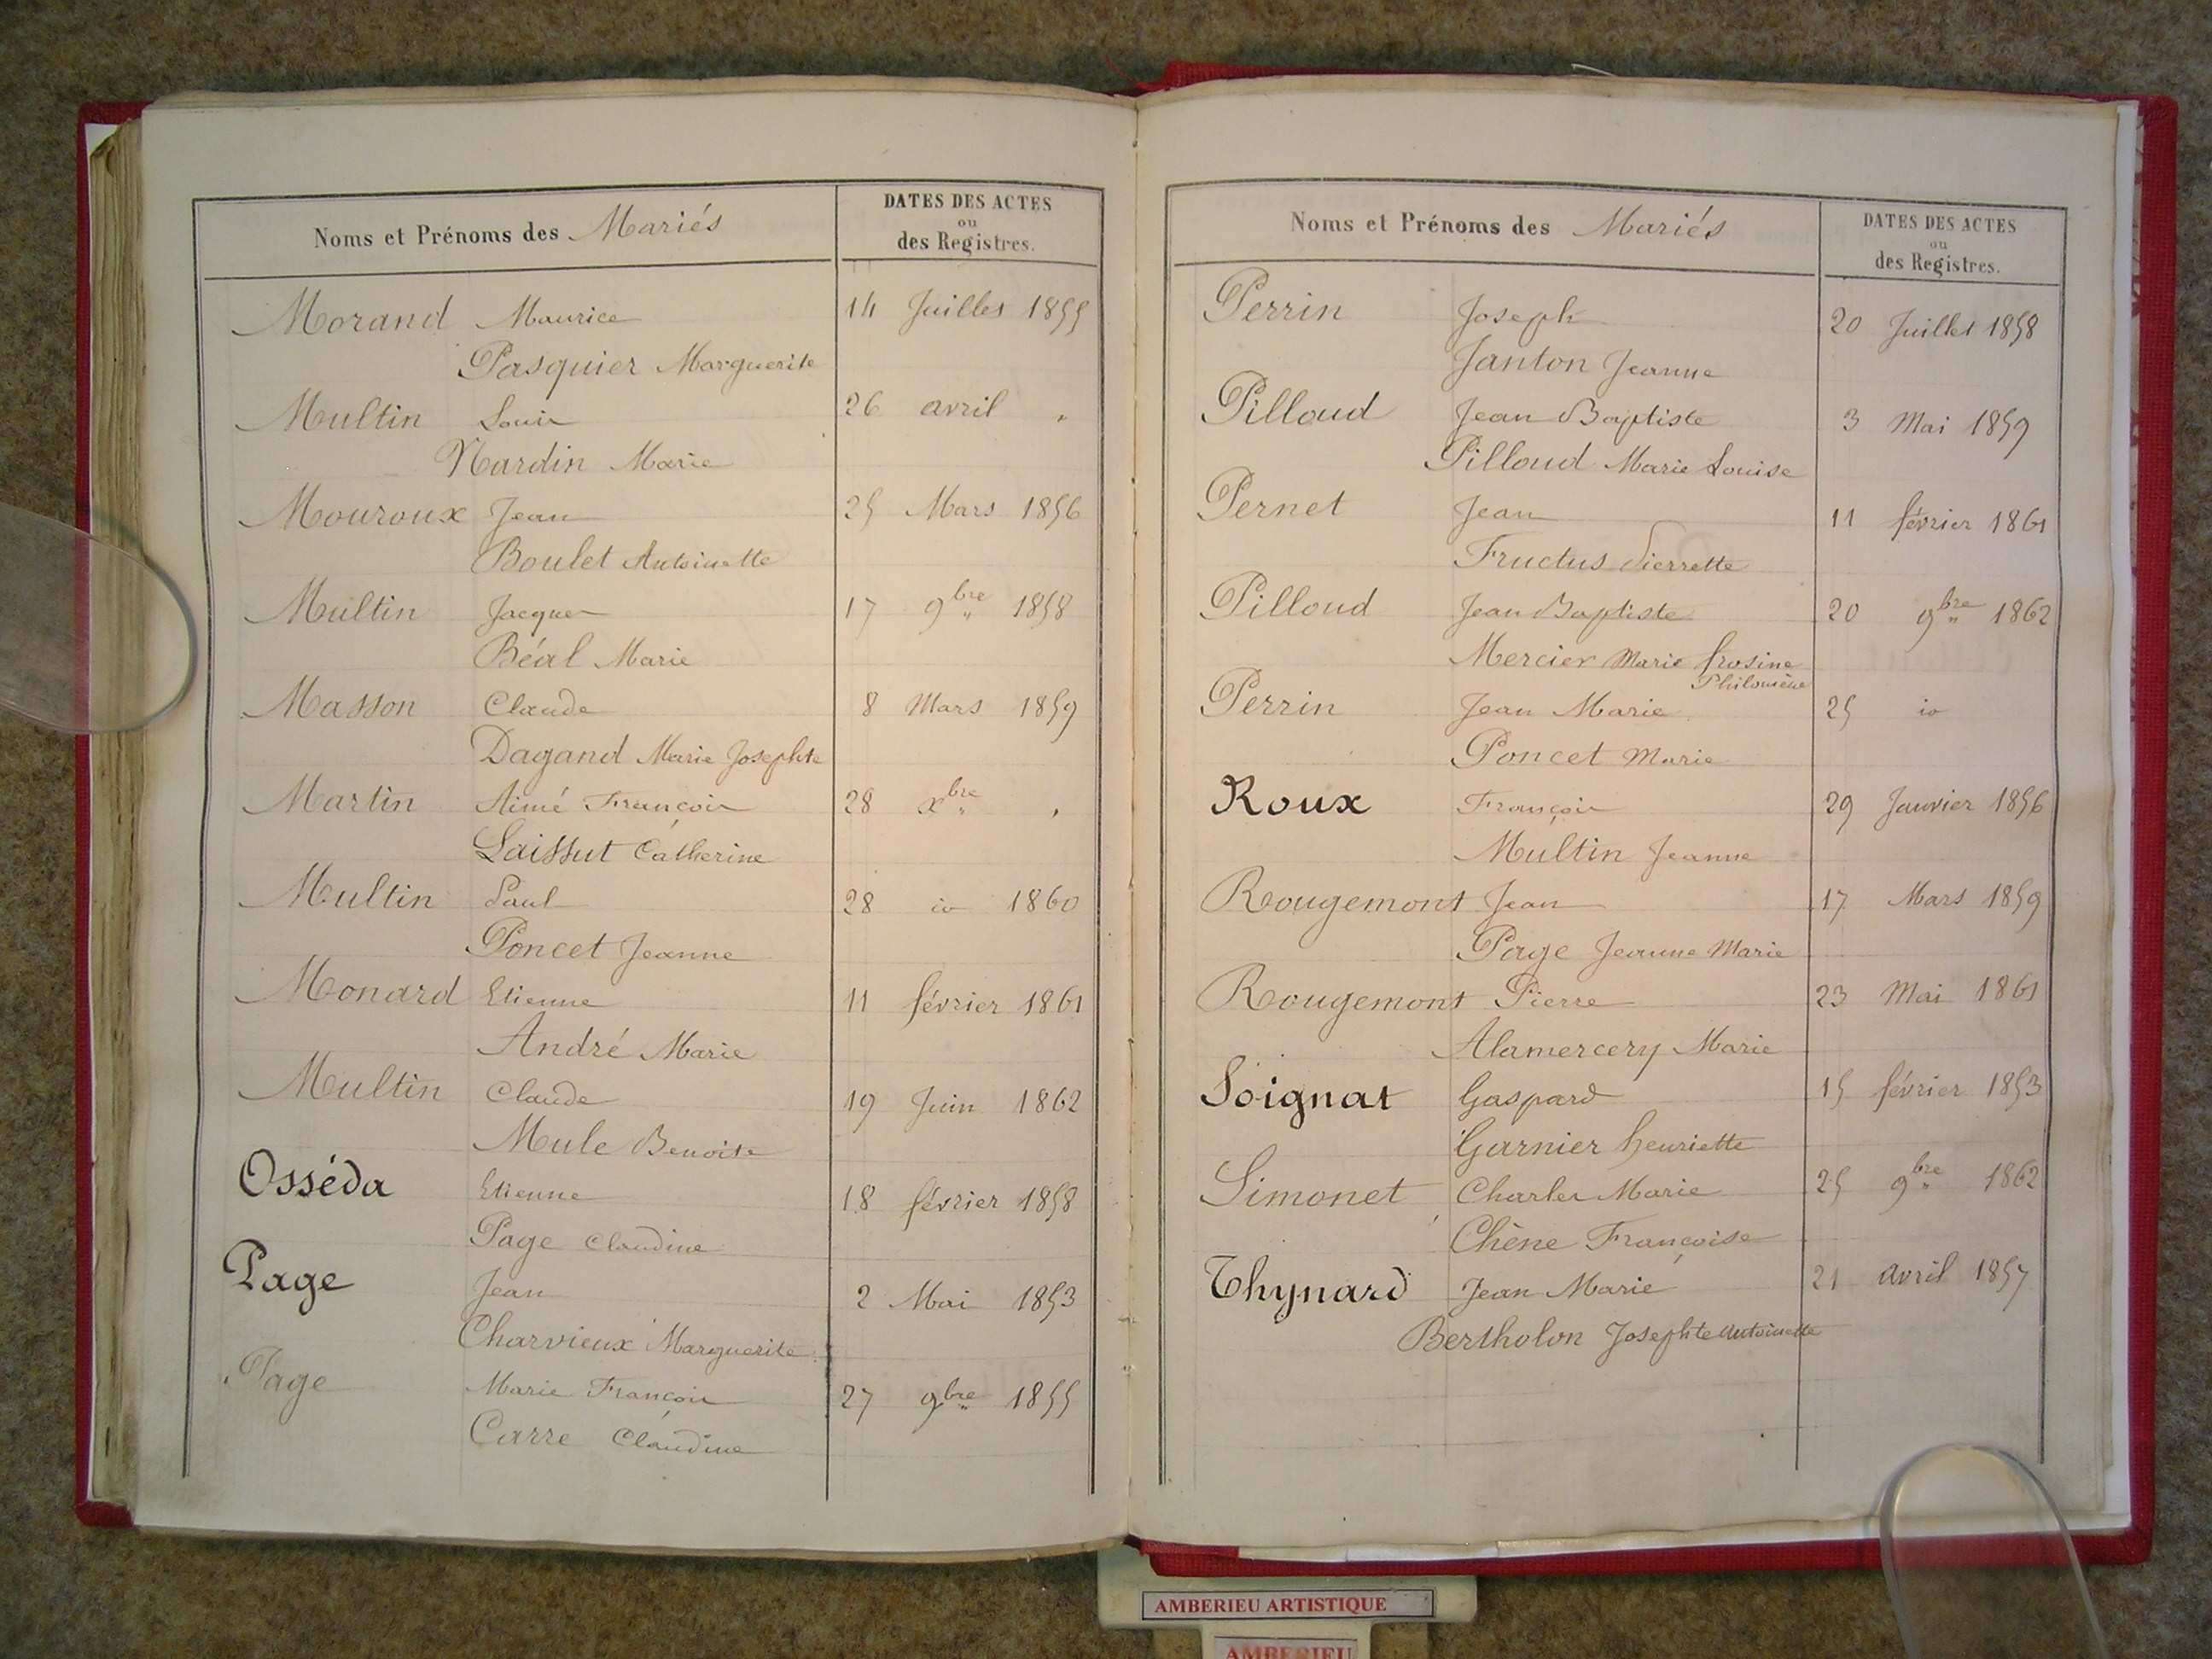 Noms et Prénoms des Mariés
DATES DES ACTES
ou
des Registres.
Morand Maurice 14 Juillet 1855
Pasquier Marguerite
Multin Louis 26 avril "
Nardin Marie
Mouroux Jean 25 Mars 1856
Boulet Antoinette
Multin Jacques 17 9bre 1858
Béal Marie
Masson Claude 8 Mars 1859
Dagand Marie Josephte
Martin Aimé François 28 xbre "
Laissut Catherine
Multin Paul 28 io 1860
Poncet Jeanne
Monard Etienne 11 février 1861
André Marie
Multin Claude 19 Juin 1862
Mule Benoite
Osséda Etienne 18 février 1858
Page Claudine
Page Jean 2 Mai 1853
Charvieux Marguerite
Page Marie François 27 9bre 1855
Carre Claudine
Noms et Prénoms des Mariés
DATES DES ACTES
ou
des Registres.
Perrin Joseph 20 Juillet 1858
Janton Jeanne
Pilloud Jean Baptiste 3 Mai 1859
Pilloud Marie Louise
Pernet Jean 11 février 1861
Fructus Pierrette
Pilloud Jean Baptiste 20 9bre 1862
Mercier Marie frosine
Philomène
Perrin Jean Marie 25 io
Poncet Marie
Roux François 29 Janvier 1856
Multin Jeanne
Rougemont Jean 17 Mars 1859
Page Jeanne Marie
Rougemont Pierre 23 Mai 1861
Alamercery Marie
Soignat Gaspard 15 février 1853
Garnier henriette
Simonet Charles Marie 25 9bre 1862
Chêne Françoise
Thynard Jean Marie 21 avril 1857
Bertholon Josephte Antoinette
AMBERIEU ARTISTIQUE
AMBERIEU